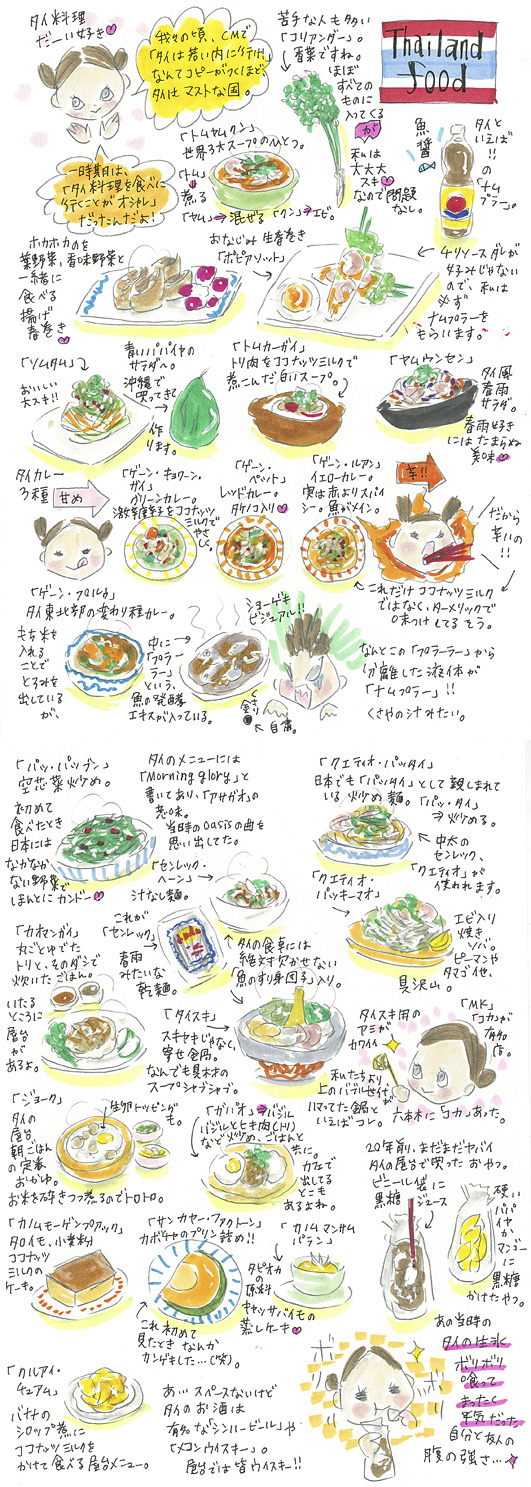 タイ料理
だーい好き
我々の頃、CMで
「タイは若いうちに行け」
なんてコピーがつくほど、
タイはマストな国。
苦手な人も多い
「コリアンダー」。
香菜ですね。
ほぼ
すべての
ものに
入ってくる
が
私は
大大大
スキ
なので問題
なし。
Thailand
food
魚醤
タイと
いえば!!
の
「ナム
プラー」。
一時期は、
「タイ料理を食べに
行くことがオシャレ」
だったんだよ!
「トムヤムクン」
世界3大スープのひとつ。
「トム」
煮る
「ヤム」→混ぜる「クン」→エビ。
ホカホカのを
葉野菜、香味野菜と
一緒に
食べる
揚げ
春巻き
おなじみ生春巻き
「ポピアソット」
チリソースダレが
好みじゃない
ので、私は
必ず
ナムプラーを
もらいます。
「ソムタム」
おいしい
大スキ!!
青いパパイヤの
サラダへ。
沖縄で
買ってきて
作り
ます。
「トムカーガイ」
トリ肉をココナッツミルクで
煮こんだ白いスープ。
「ヤムウンセン」
タイ風
春雨
サラダ。
春雨好き
にはたまらぬ
美味
タイカレー
3種
甘め
「ゲーン・キョワーン・
ガイ」
グリーンカレー。
激辛青唐辛子をココナッツ
ミルクで
やさしく。
「ゲーン・
ペット」
レッドカレー。
タケノコ入り
「ゲーン・ルアン」
イエローカレー。
実は赤よりスパイ
シー。魚がメイン。
辛!!
だから
辛いの!!
これだけココナッツミルク
ではなく、ターメリックで
味つけしてるそう。
タイ東北部の変わり種カレー。
もち米を
入れる
ことで
とろみを
出している
が、
中に
「プラー
ラー」
という、
魚の発酵
エキスが入っている。
ショーゲキ
ビジュアル!!
自粛。
なんとこの「プラーラー」から
分離した液体が
「ナムプラー」!!
くさやの汁みたい。
「パッ・パップン」
空芯菜炒め。
初めて
食べたとき
日本には
なかなか
ない野菜で
ほんとにカンドー
タイのメニューには
「Morning glory」と
書いてあり、「アサガオ」の
意味。
当時のoasisの曲を
思い出してた。
「クエティオ・パッタイ」
日本でも「パッタイ」として親しまれて
いる炒め麺。「パッ・タイ」
→炒める。
中太の
センレック、
「クエティオ」が
使われます。
「センレック・
ヘーン」
汁なし麺。
これが
「センレック」。
春雨
みたいな
乾麺。
タイの食卓には
絶対欠かせない
「魚のすり身団子」入り。
「クエティオ・
パッキーマオ」
エビ入り
焼き
ソバ。
ピーマンや
タマゴイセ、
具沢山。
「カオマンガイ」
丸ごとゆでた
トリと、そのダシで
炊いたごはん。
いたる
ところに
屋台
が
あるよ。
「タイスキ」
スキヤキじゃなく、
寄せ鍋。
なんでも具材の
スープシャブシャブ。
タイスキ用の
アミが
カワイイ
「MK」
「コカ」が
有名
店。
私たちより
上のバブルセイが
ハマってた鍋と
いえばコレ。
六本木に「コカ」あった。
「ジョーク」
タイの
屋台、
朝ごはん
の定番
おかゆ。
生卵トッピングも
お米を砕きつつ煮るのでトロトロ。
「ガパオ」→バジル
バジルとヒキ肉(トリ)
など炒め、ごはんと
共に。
カフェで
出してる
とこも
あるよね。
20年前、まだまだヤバイ
タイの屋台で買ったおやつ。
ビニール袋に
黒糖
ジュース
硬い
パパイヤか
マンゴー
に
黒糖
かけたやつ。
「カノムモーゲンプアック」
タロイモ、小麦粉
ココナッツ
ミルクの
ケーキ。
「サンカヤー・ファクトーン」
カボチャのプリン詰め!!
これ初めて
見たときなんか
カンゲキした…(笑)。
「カノムマンサム
パラン」
タピオカ
の
原料
キャッサバイモの
蒸しケーキ
あの当時の
タイの生氷
ボリボリ
喰って
まったく
平気だった
自分と友人の
腹の強さ…
「クルアイ・
チュアム」
バナナの
シロップ煮に
ココナッツミルクを
かけて食べる屋台メニュー。
あ…スペースないけど
タイのお酒は
有名な「シンハービール」や
「メコンウイスキー」。
屋台では皆ウイスキー!!